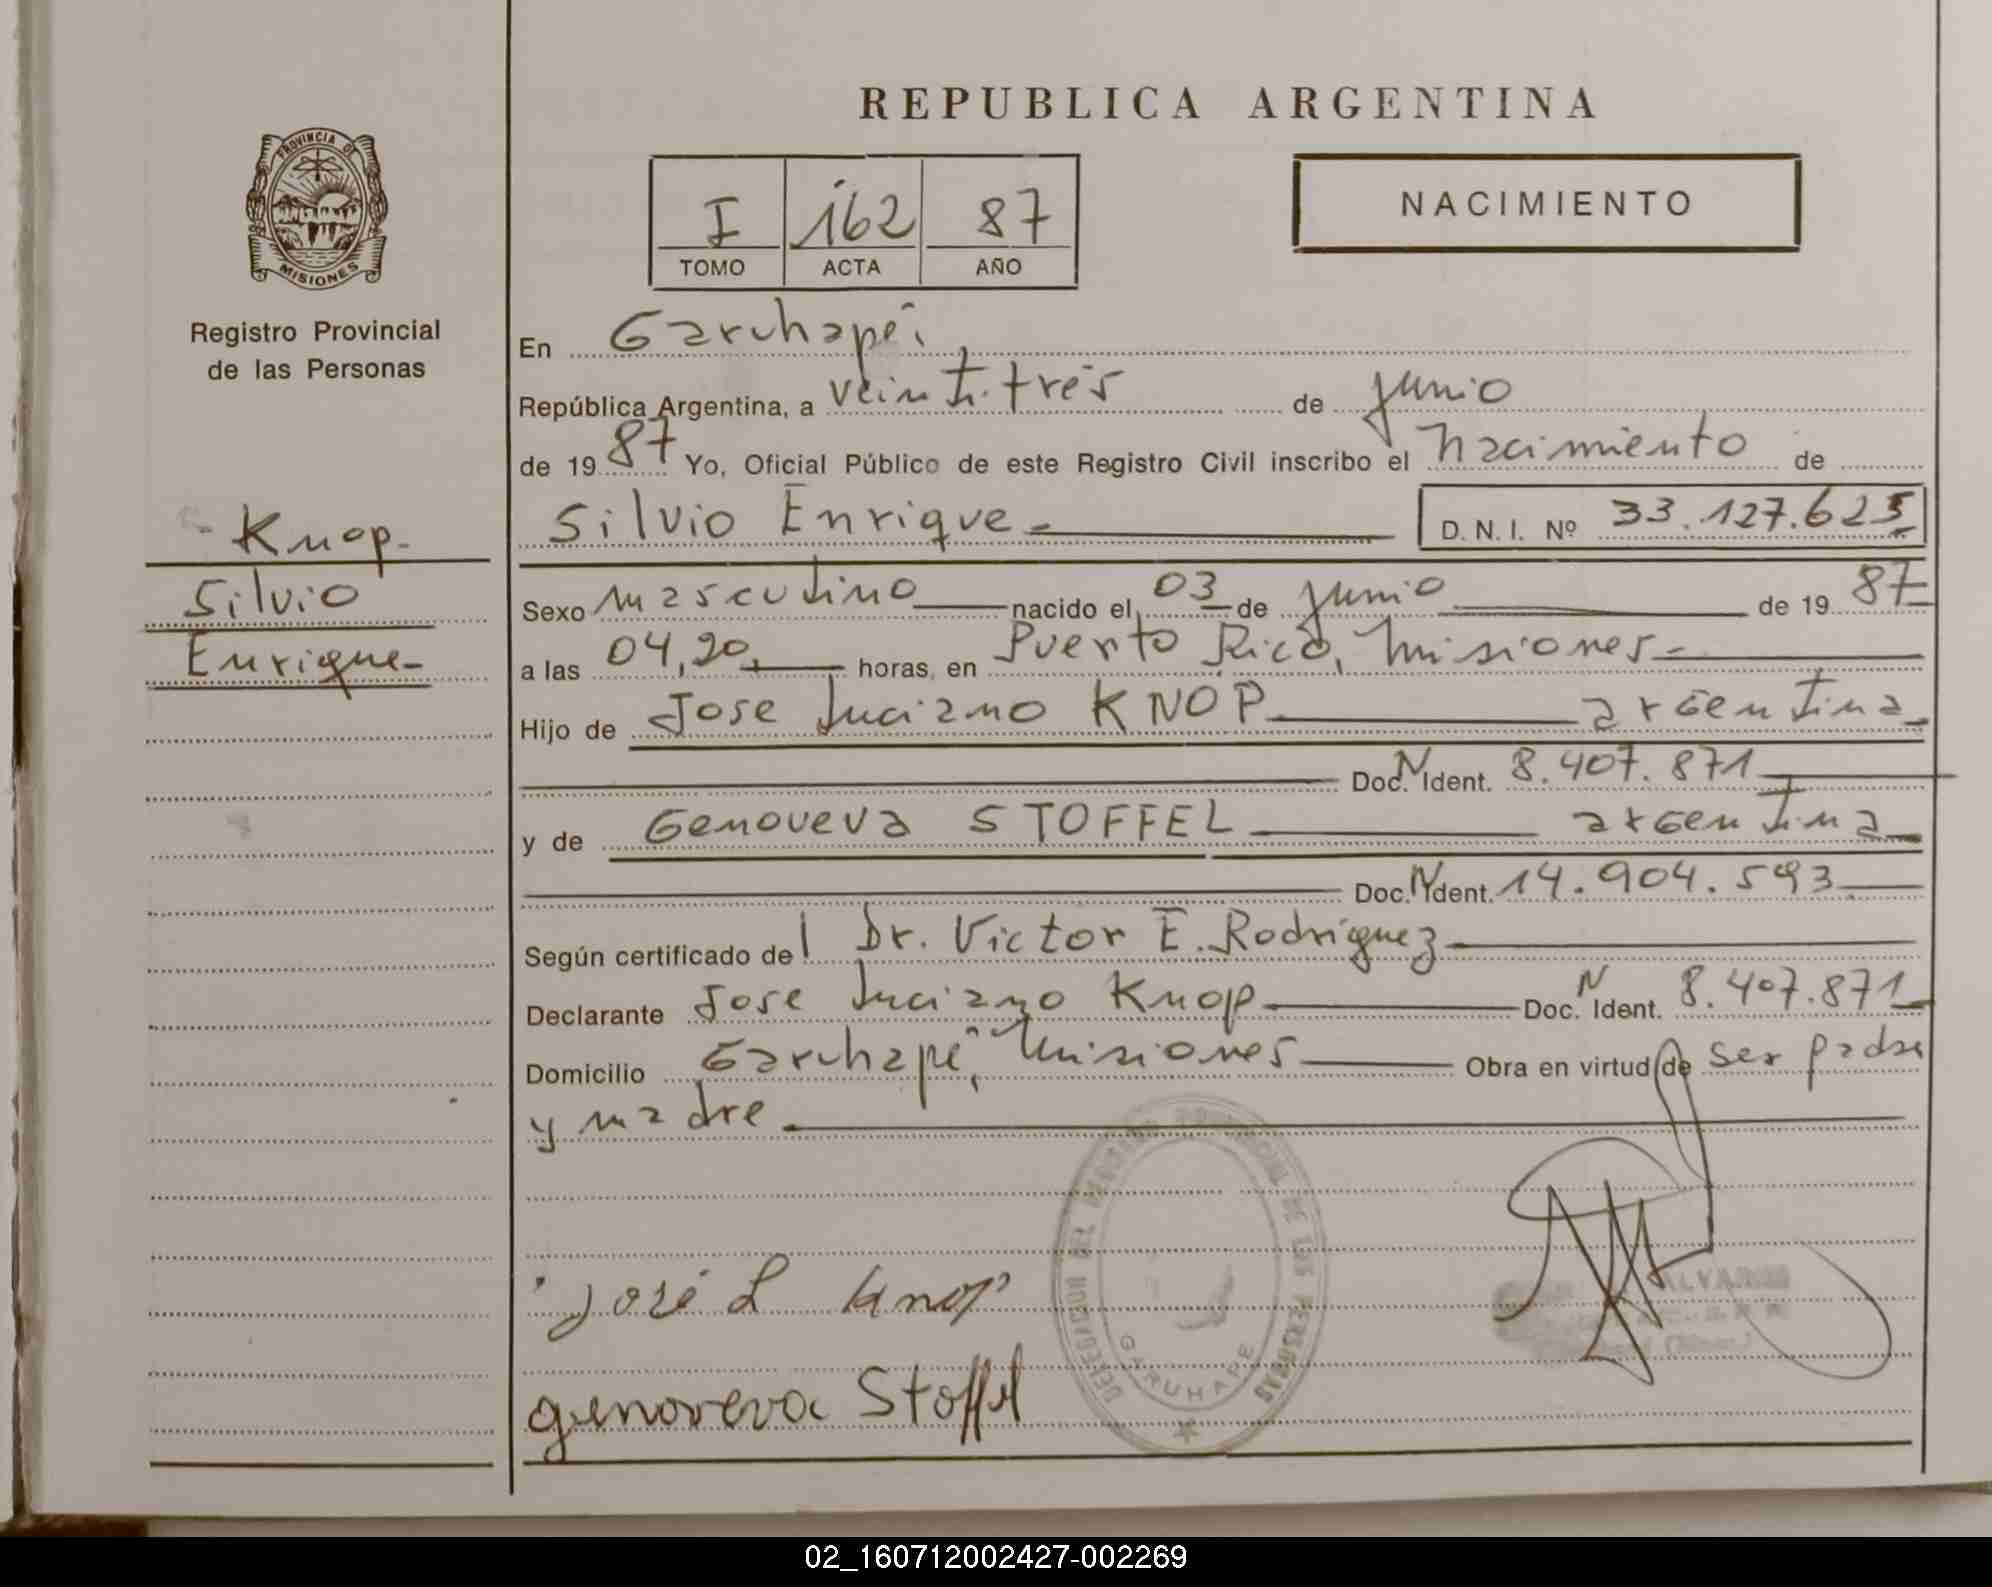 REPUBLICA ARGENTINA
PROVINCIA DE
MISIONES
Registro Provincial
de las Personas
I 162 87
TOMO ACTA AÑO
NACIMIENTO
En Garuhapé,
República Argentina, a veintitrés de junio
de 1987 Yo, Oficial Público de este Registro Civil inscribo el Nacimiento de
Silvio Enrique D.N.I. Nº 33.127.625
Knop
Silvio
Enrique
Sexo masculino nacido el 03 de junio de 1987
a las 04,20, horas, en Puerto Rico, Misiones
Hijo de Jose Luciano KNOP argentina
Doc. N Ident. 8.407.871
y de Genoveva STOFFEL argentina
Doc. N Ident. 14.904.593
Según certificado del Dr. Victor E. Rodríguez
Declarante Jose Luciano Knop Doc. N Ident. 8.407.871
Domicilio Garuhapé, Misiones Obra en virtud de ser padre
y madre
José L Knop
genoveva Stoffel
DELEGACION DEL REGISTRO PROVINCIAL DE LAS PERSONAS
GARUHAPE
02_160712002427-002269